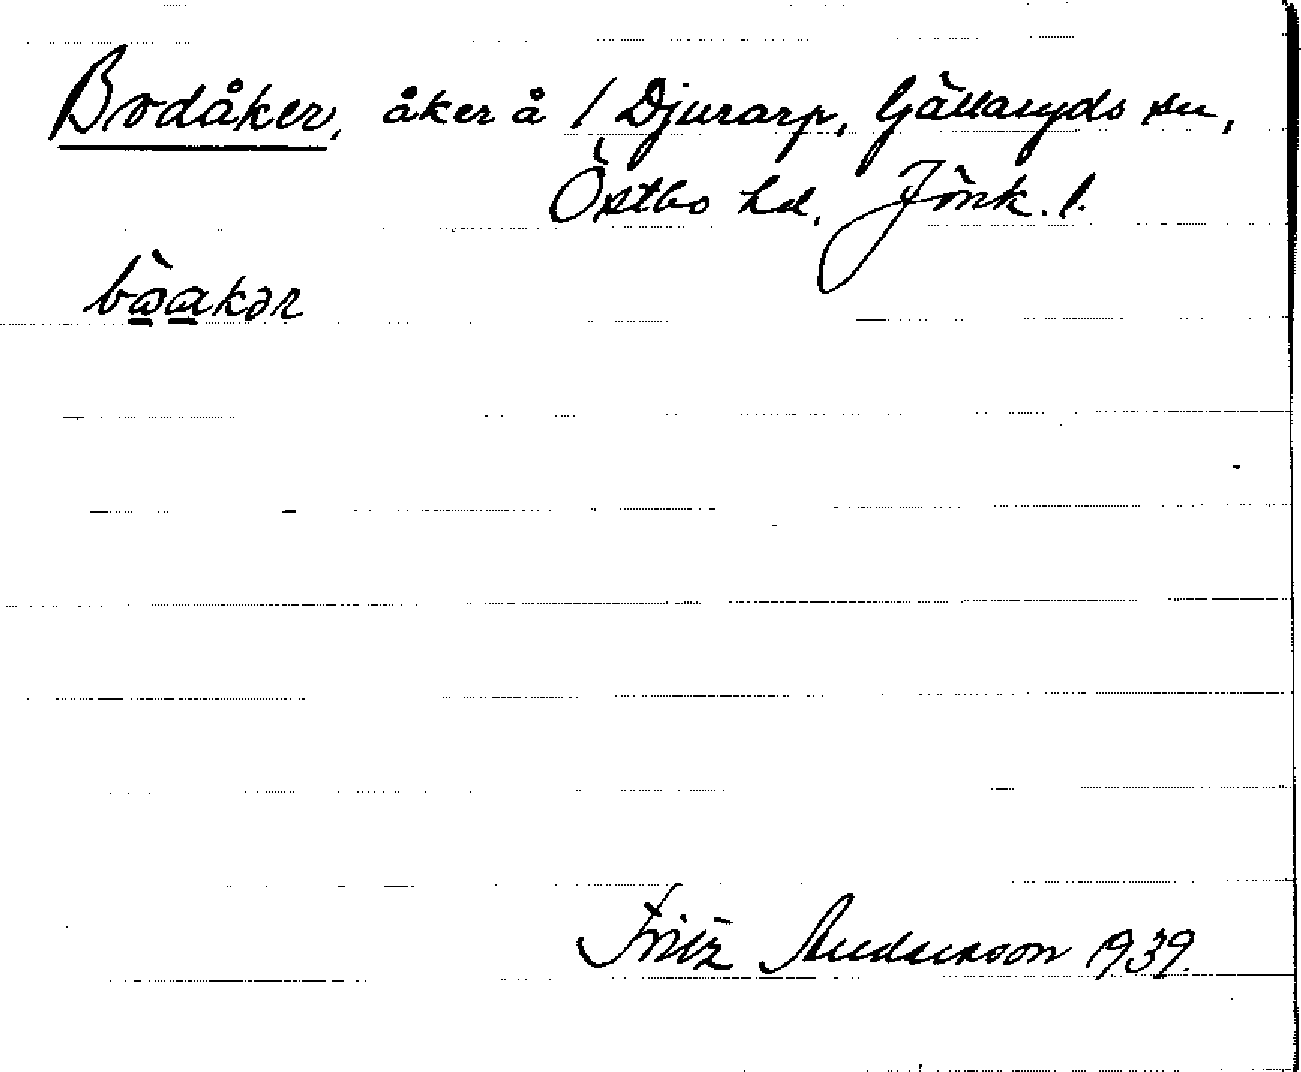 Bodåker, åker å 1 Djurarp, Gällaryds sn,
Östbo hd. Jönk. l.
Fritz Andersson 1939.